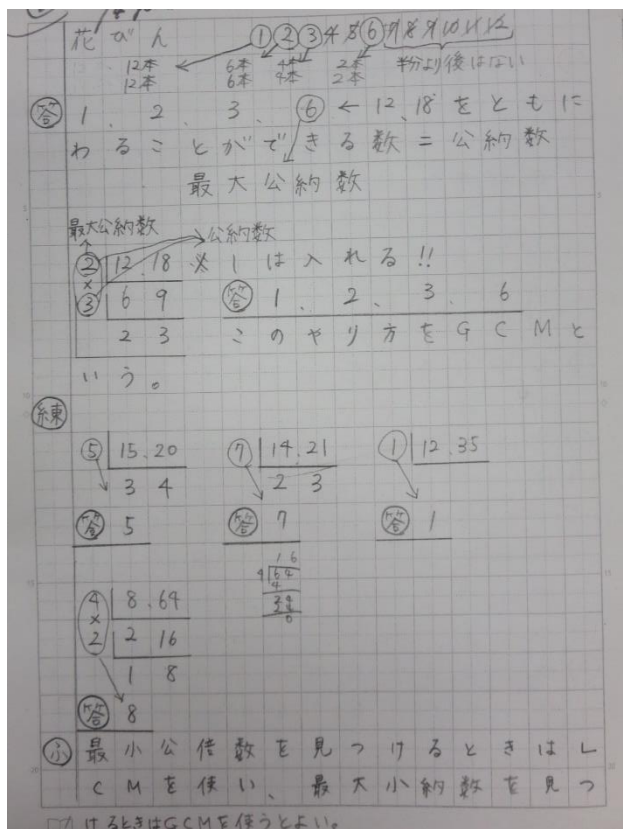 花びん ① ② ③ 4 5 ⑥ 7 8 9 10 11 12
12本 6本 4本 2本 半分より後はない
12本 6本 4本 2本
答 1、2、3、⑥ ← 12、18をともに
わることができる数=公約数
最大公約数
最大公約数 公約数
② 12、18 ※1は入れる!!
×
③ 6 9 答 1、2、3、6
2 3 このやり方をGCMと
いう。
練
⑤ 15、20 ⑦ 14、21 ① 12、35
3 4 2 3
答 5 答 7 答 1
16
4 64
4
24
24
0
4 8、64
×
2 2 16
1 8
答 8
ふ 最小公倍数を見つけるときはL
CMを使い、最大小約数を見つ
けるときはGCMを使うとよい。